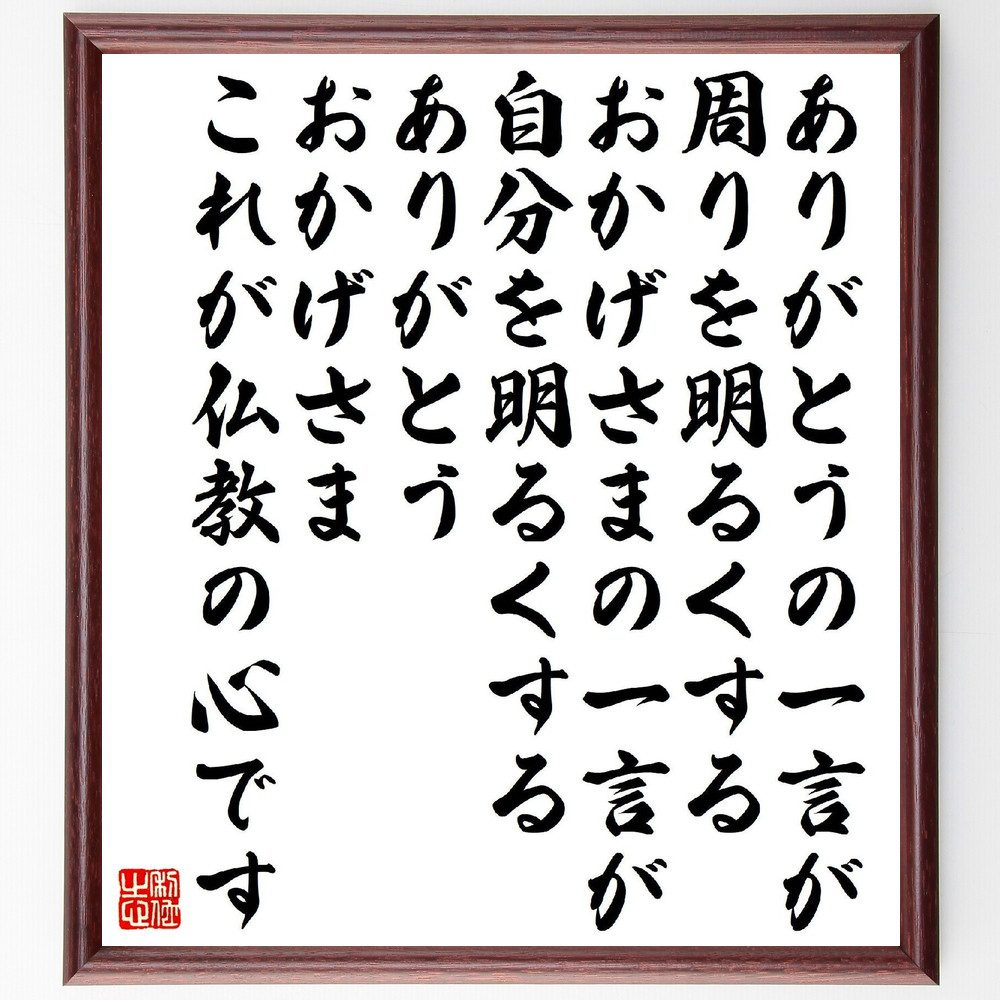 ありがとうの一言が
周りを明るくする
おかげさまの一言が
自分を明るくする
ありがとう
おかげさま
これが仏教の心です